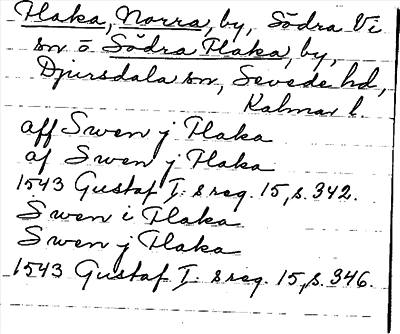 Flaka, Norra, by, Södra Vi
sn o Södra Flaka, by,
Djursdala sn, Sevede hd,
Kalmar l.
aff Swen j Flaka
af Swen j Flaka
1543 Gustaf I: s reg. 15, s. 342.
Swen i Flaka
Swen j Flaka
1543 Gustaf I: s reg. 15, s. 346.